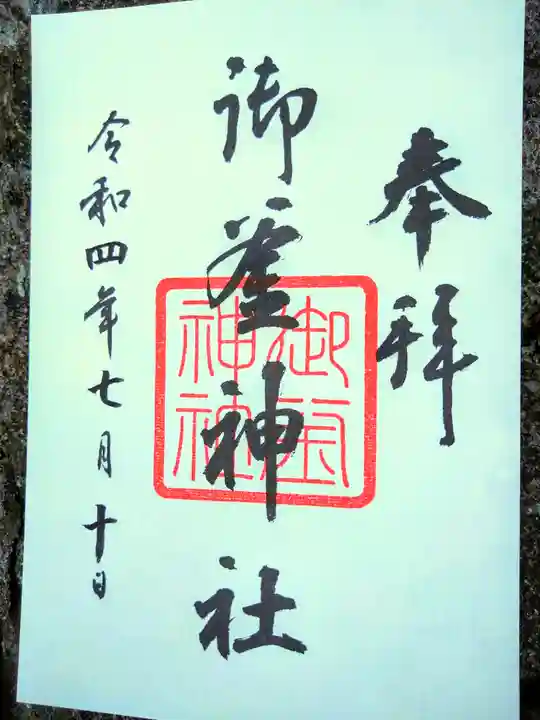 奉拝
御釜神社
御釜神社
令和四年七月十日